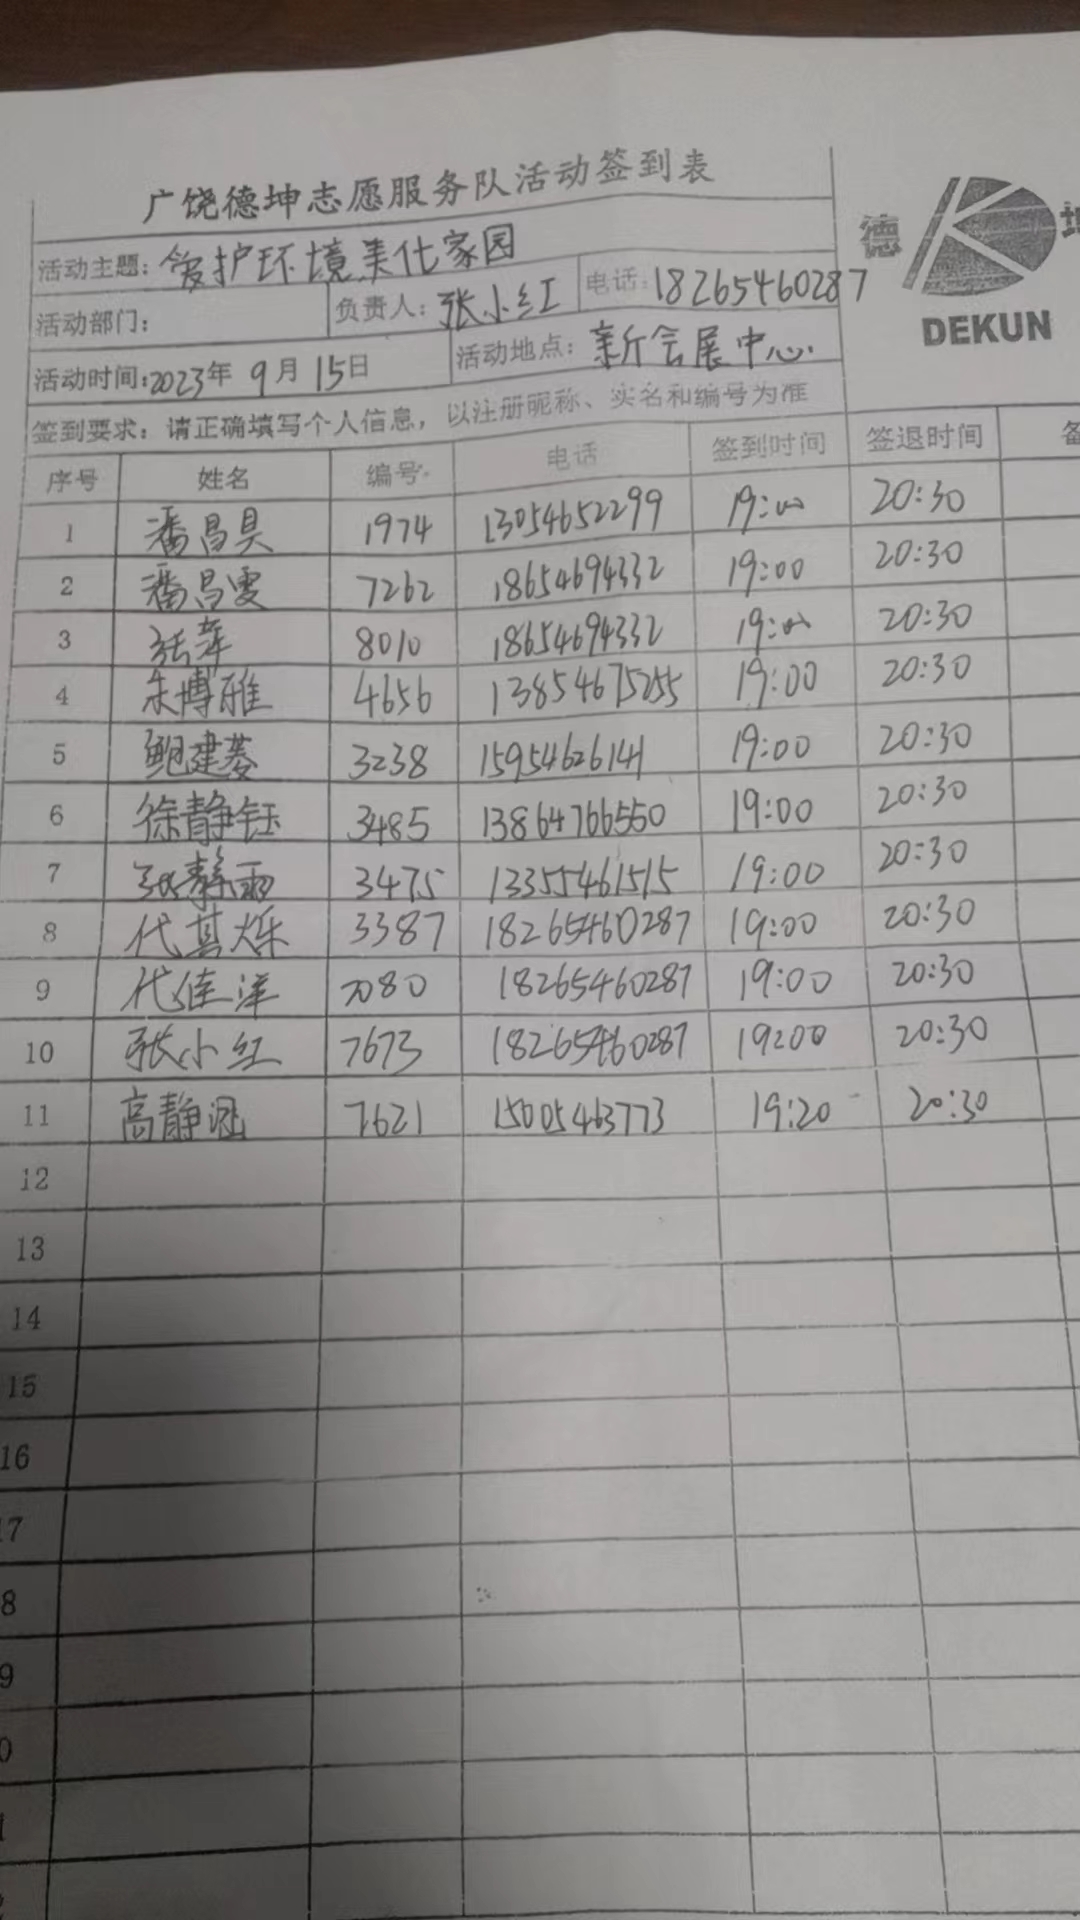 广饶德坤志愿服务队活动签到表
德 坤
DEKUN
活动主题：爱护环境美化家园
活动部门： 负责人：张小红 电话：18265460287
活动时间：2023年 9月 15日 活动地点：新会展中心.
签到要求：请正确填写个人信息，以注册昵称、实名和编号为准
序号 姓名 编号 电话 签到时间 签退时间 备
1 潘昌昊 1974 13054652299 19:00 20:30
2 潘昌雯 7262 18654694332 19:00 20:30
3 张萍 8010 18654694332 19:00 20:30
4 朱博雅 4656 13854675255 19:00 20:30
5 鲍建菱 3238 15954626141 19:00 20:30
6 徐静钰 3485 13864766550 19:00 20:30
7 静雨 3475 13355461515 19:00 20:30
8 代其烁 3387 18265460287 19:00 20:30
9 代佳洋 7080 18265460287 19:00 20:30
10 张小红 7673 18265460287 19:00 20:30
11 高静涵 7621 15005463773 19:20 20:30
12
13
14
15
16
17
8
9
0
1